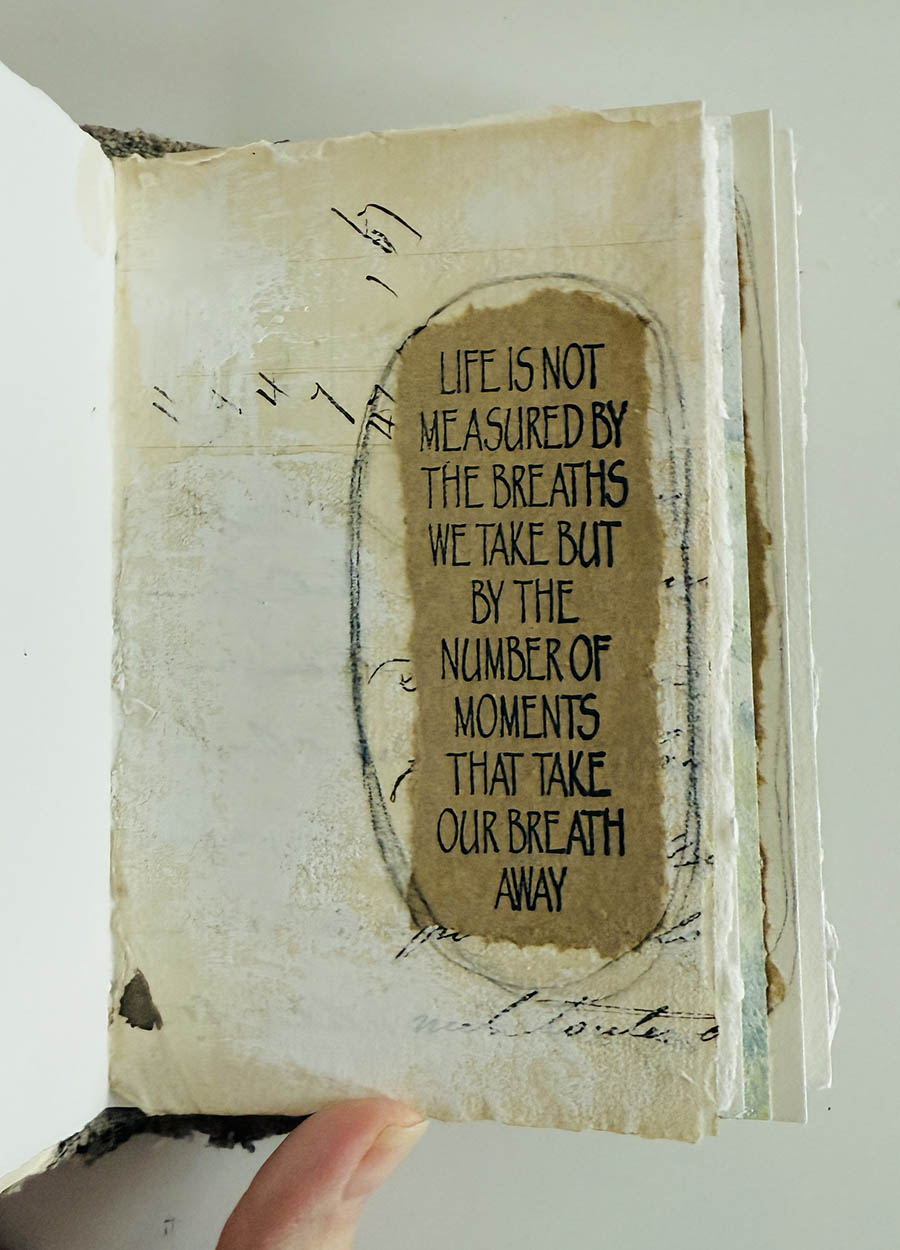 LIFE IS NOT
MEASURED BY
THE BREATHS
WE TAKE BUT
BY THE
NUMBER OF
MOMENTS
THAT TAKE
OUR BREATH
AWAY